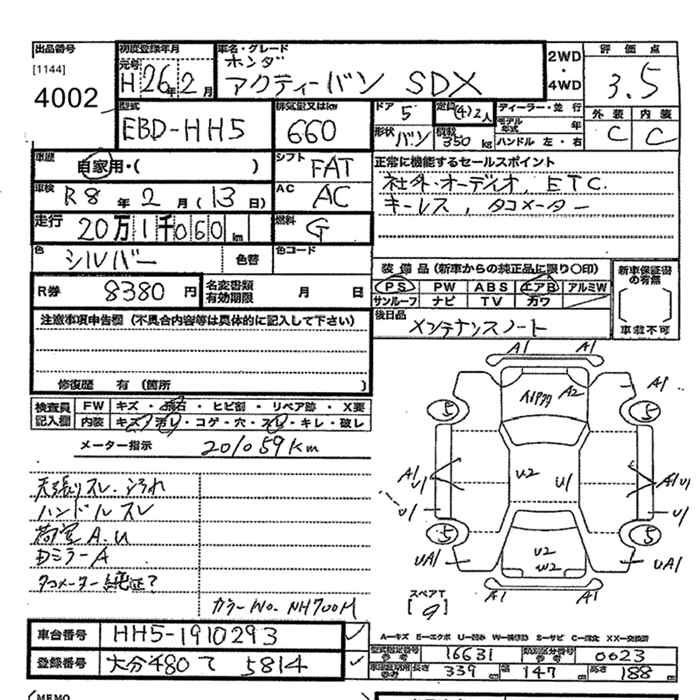 出品番号
[1144]
4002
初度登録年月
元号
H 26年 2月
車名・グレード
ホンダ
アクティーバン SDX
2WD
・
4WD
評価点
3.5
外装 内装
C C
型式
EBD-HH5
排気量又はkw
660
ドア 5
形状 バン
定員 (4)2人
積載 350 kg
ディーラー・並行
モデル年式 年
ハンドル 左・右
車歴
自家用・( )
シフト
FAT
車検
R8年 2月 (13日)
AC
AC
走行
20万1千060km
燃料
G
正常に機能するセールスポイント
社外オーディオ, ETC.
キーレス, タコメーター
色
シルバー
色替
色コード
装備品 (新車からの純正品に限り○印)
PS PW ABS エアB アルミW
サンルーフ ナビ TV カワ
新車保証書の有無
[ ]
車載不可
R券
8380円
名変書類有効期限
月 日
後日品
メンテナンスノート
注意事項申告欄 (不具合内容等は具体的に記入して下さい)
修復歴 有 (箇所 )
検査員記入欄
FW キズ・飛石・ヒビ割・リペア跡・X要
内装 キズ・汚レ・コゲ・穴・スレ・キレ・破レ
メーター指示
201059Km
天張りスレ・汚れ
ハンドルスレ
荷室 A.U
Dミラー A
タコメーター純正?
カラーNo. NH700M
A1 A1
A1 A2 A1
5 5
A1 U1 U2 U1 A1
U1 U1
5 5
UA1 U2 W2 UA1
A1 A1
スペアT
[9]
車台番号
HH5-1910293
登録番号
大分 480 て 5814
A-キズ E-エクボ U-凹み W-補修跡 S-サビ C-腐蝕 XX-交換済
型式指定番号 参考
16631
類別区分番号 参考
0023
長さ 339 幅 147 高さ 188
MEMO